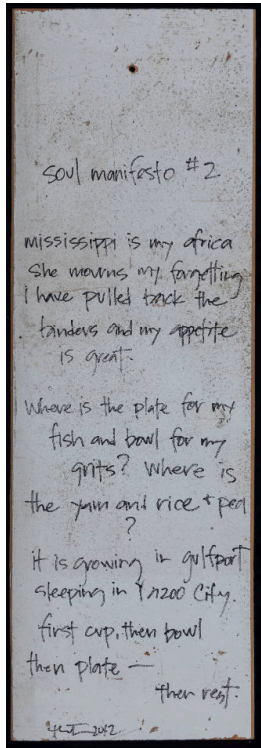 soul manifesto #2
mississippi is my africa
she mourns my forgetting
I have pulled back the
and my appetite
is great.
Where is the plate for my
fish and bowl for my
grits? Where is
the yam and rice + pea
?
it is growing in gulfport
sleeping in Yazoo City.
first cup, then bowl
then plate —
then rest
2012